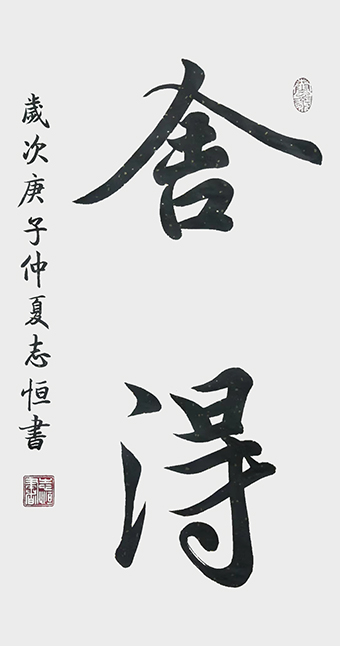 舍得
歲次庚子仲夏志恒書